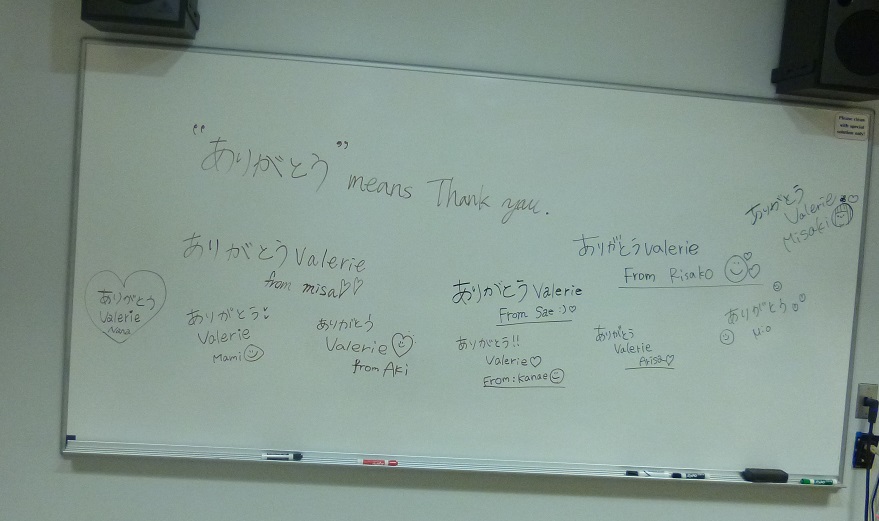 "ありがとう" means Thank you.
ありがとう Valerie
from misa♡♡
ありがとう
Valerie
Nana
ありがとう!
Valerie
Mami
ありがとう
Valerie
from Aki
ありがとう Valerie
From Sae :)♡
ありがとう!!
Valerie♡
From: Kanae
ありがとう Valerie
From Risako
ありがとう
Valerie
Arisa♡
ありがとう
Valerie
Misaki
ありがとう
Mio
Please clean
with special
solution only!